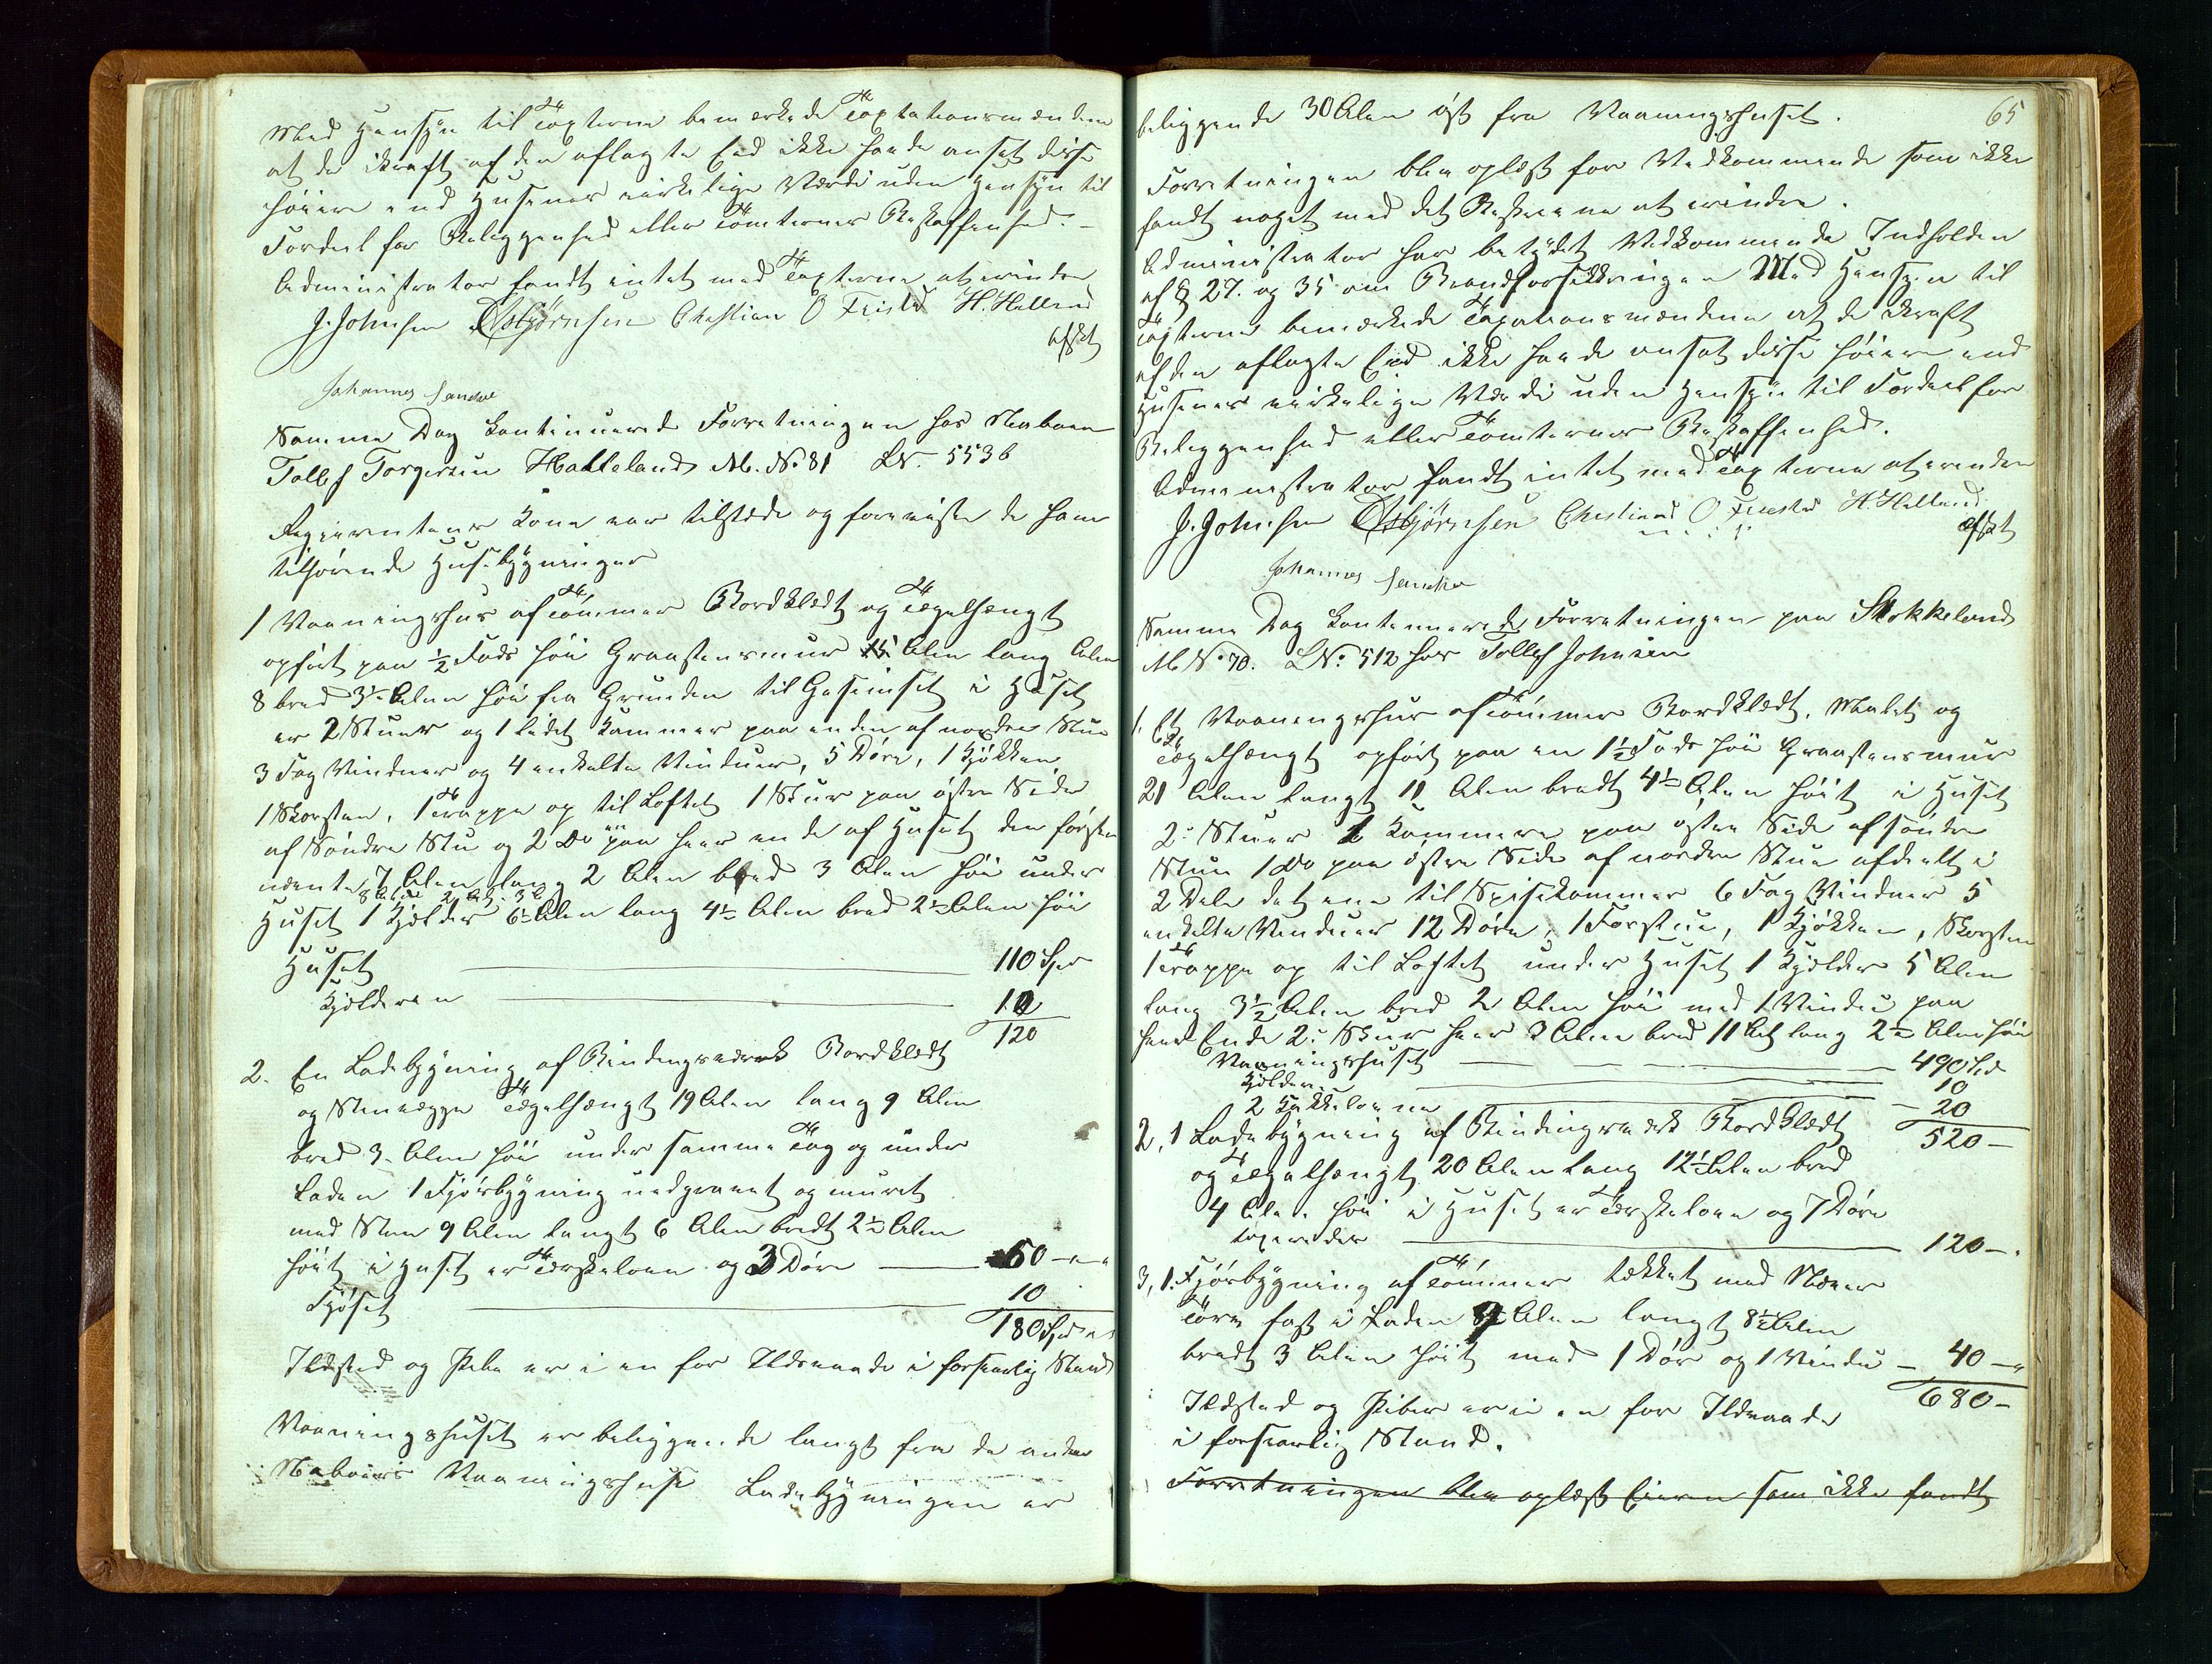 Med Hensyn til Taxterne bemærkede Taxtationsmændene
at de ikraft af den aflagte Eed ikke havde ansat disse
høiere end Husenes virkelige Værdi uden Hensyn til
Fordeel for Beliggenhed eller Tomternes Beskaffenhed. –
Administrator fandt intet mod Taxterne at erindre
J. Johnsen Osbjørnsen Christian O Friestad H. Helland
afsat
Johannes Sandve
Samme Dag kontinuerede Forretningen hos Naboen
Tollef Torgersen Halleland M. No 81 LN. 553b
Reqvirentens Kone var tilstede og foreviste de ham
tilhørende Husebygninger
1 Vaaningshus af Tømmer Bordklædt og Tegelhængt
opført paa ½ Fods høi Graasteensmuur 15 Alen lang Alen
8 bred 3½ Alen høi fra Grunden til Gesimset i Huset
er 2 Stuer og 1 lidet Kammer paa enden af nordre Stue
3 Fag Vinduer og 4 enkelte Vinduer, 5 Døre, 1 Kjøkken
1 Skorsten, 1 Trappe op til Loftet 1 Skur paa østre Side
af Søndre Stue og 2 Do paa hver ende af Huset den første
7 Alen lang 2 Alen bred 3 Alen høi under
Huset 1 Kjelder 6½ Alen lang 4½ Alen bred 2½ Alen høi
Huset 110 Spd
Kjelderen 10
120
2. En Ladebygning af Bindingsværk Bordklædt
og Steenvægge Tegelhængt 19 Alen lang 9 Alen
bred 3 Alen høi under samme Tag og under
Laden 1 Fjøsbygning nedgravet og muret
med Steen 9 Alen langt 6 Alen bredt 2½ Alen
høit i Huset er Tærskeloen og 3 Døre 60 – " – "
Fjøset 10
180 Spd " "
Ildsted og Pibe er i en for Ildsvaade i forsvarlig Stand
Vaaningshuset er beliggende langt fra de andre
Naboers Vaaningshuse Ladebygningen er
65
beliggende 30 Alen øst fra Vaaningshuset.
Forretningen blev oplæst for Vedkommende som ikke
fandt noget mod det Beskrevne at erindre.
Administrator har betydet Vedkommende Indholden
af § 27. og 35 om Brandforsikkringen Med Hensyn til
Taxterne bemærkede Taxationsmændene at de ikraft
af den aflagte Eed ikke havde ansat disse høiere end
Husenes virkelige Værdi uden Hensyn til Fordeel for
Beliggenhed eller Tomternes Beskaffenhed.
Administrator fandt intet mod Taxterne at erindre
J. Johnsen Osbjørnsen Christian O Friestad H. Helland
afsat
Johannes Sandve
Samme Dag kontinuerede Forretningen paa Stokkeland
M No. 70. LNo. 512 hos Tollef Johnsen
1. Et Vaaningshus af Tømmer Bordklædt, Malet og
Tegelhængt opført paa en 1½ Fods høi Graasteensmuur
21 Alen langt 11 Alen bredt 4½ Alen høit i Huset
2 Stuer 2 Kammere paa østre Side af søndre
Stue 1 Do paa østre Side af nordre Stue afdeelt i
2 Dele det ene til Spisekammer 6 Fag Vinduer 5
enkelte Vinduer 12 Døre, 1 Forstue, 1 Kjøkken, Skorsten
1 Trappe op til Loftet under Huset 1 Kjelder 5 Alen
lang 3½ Alen bred 2 Alen høi med 1 Vindu paa
hver Ende 2 Skur hver 3 Alen bred 11 Al lang 2½ Alen høi
Vaaningshuset 490 Spd
Kjelderen 10
2 Kakkelovne 20
520 –
2, 1 Ladebygning af Bindingsværk Bordklædt
og Tegelhængt 20 Alen lang 12½ Alen bred
4 Alen høi i Huset er Tærskeloen og 7 Døre
taxeredes 120 – "
3, 1. Fjøsbygning af Tømmer tækket med Næver
Torv fast i Laden 9 Alen langt 8½ Alen
bredt 3 Alen høit med 1 Dør og 1 Vindu – 40 – "
680 –
Ildsted og Piber er i en for Ildsvaade
i forsvarlig Stand.
Forretningen blev oplæst Eieren som ikke fandt